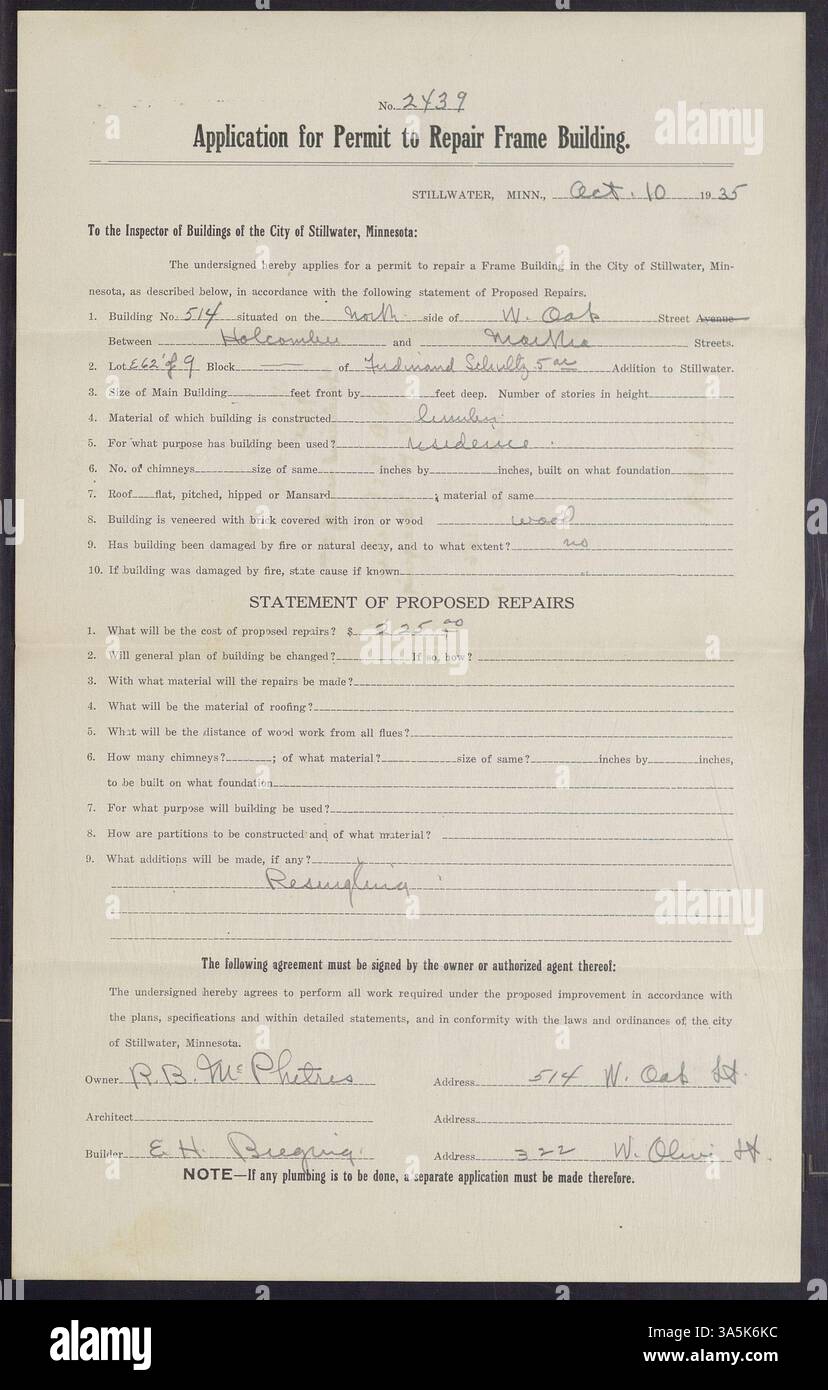 No. 2439
Application for Permit to Repair Frame Building.
STILLWATER, MINN., Oct. 10 1935
To the Inspector of Buildings of the City of Stillwater, Minnesota:
The undersigned hereby applies for a permit to repair a Frame Building in the City of Stillwater, Min-
nesota, as described below, in accordance with the following statement of Proposed Repairs.
1. Building No. 514 situated on the North side of W. Oak Street Avenue
Between Holcombe and Martha Streets.
2. Lot E 62' of 9 Block — of Ferdinand Schultz 5 Addition to Stillwater.
3. Size of Main Building feet front by feet deep. Number of stories in height
4. Material of which building is constructed lumber
5. For what purpose has building been used? residence.
6. No. of chimneys size of same inches by inches, built on what foundation
7. Roof flat, pitched, hipped or Mansard ; material of same
8. Building is veneered with brick covered with iron or wood wood
9. Has building been damaged by fire or natural decay, and to what extent? no
10. If building was damaged by fire, state cause if known
STATEMENT OF PROPOSED REPAIRS
1. What will be the cost of proposed repairs? $ 225 00
2. Will general plan of building be changed? If so, how?
3. With what material will the repairs be made?
4. What will be the material of roofing?
5. What will be the distance of wood work from all flues?
6. How many chimneys? ; of what material? size of same? inches by inches,
to be built on what foundation
7. For what purpose will building be used?
8. How are partitions to be constructed and of what material?
9. What additions will be made, if any?
Resingling
The following agreement must be signed by the owner or authorized agent thereof:
The undersigned hereby agrees to perform all work required under the proposed improvement in accordance with
the plans, specifications and within detailed statements, and in conformity with the laws and ordinances of the city
of Stillwater, Minnesota.
Owner R. B. McPhetres Address 514 W. Oak St.
Architect Address
Builder E. H. Address 322 W. Olive St.
NOTE—If any plumbing is to be done, a separate application must be made therefore.
alamy
Image ID: 3A5K6KC
www.alamy.com